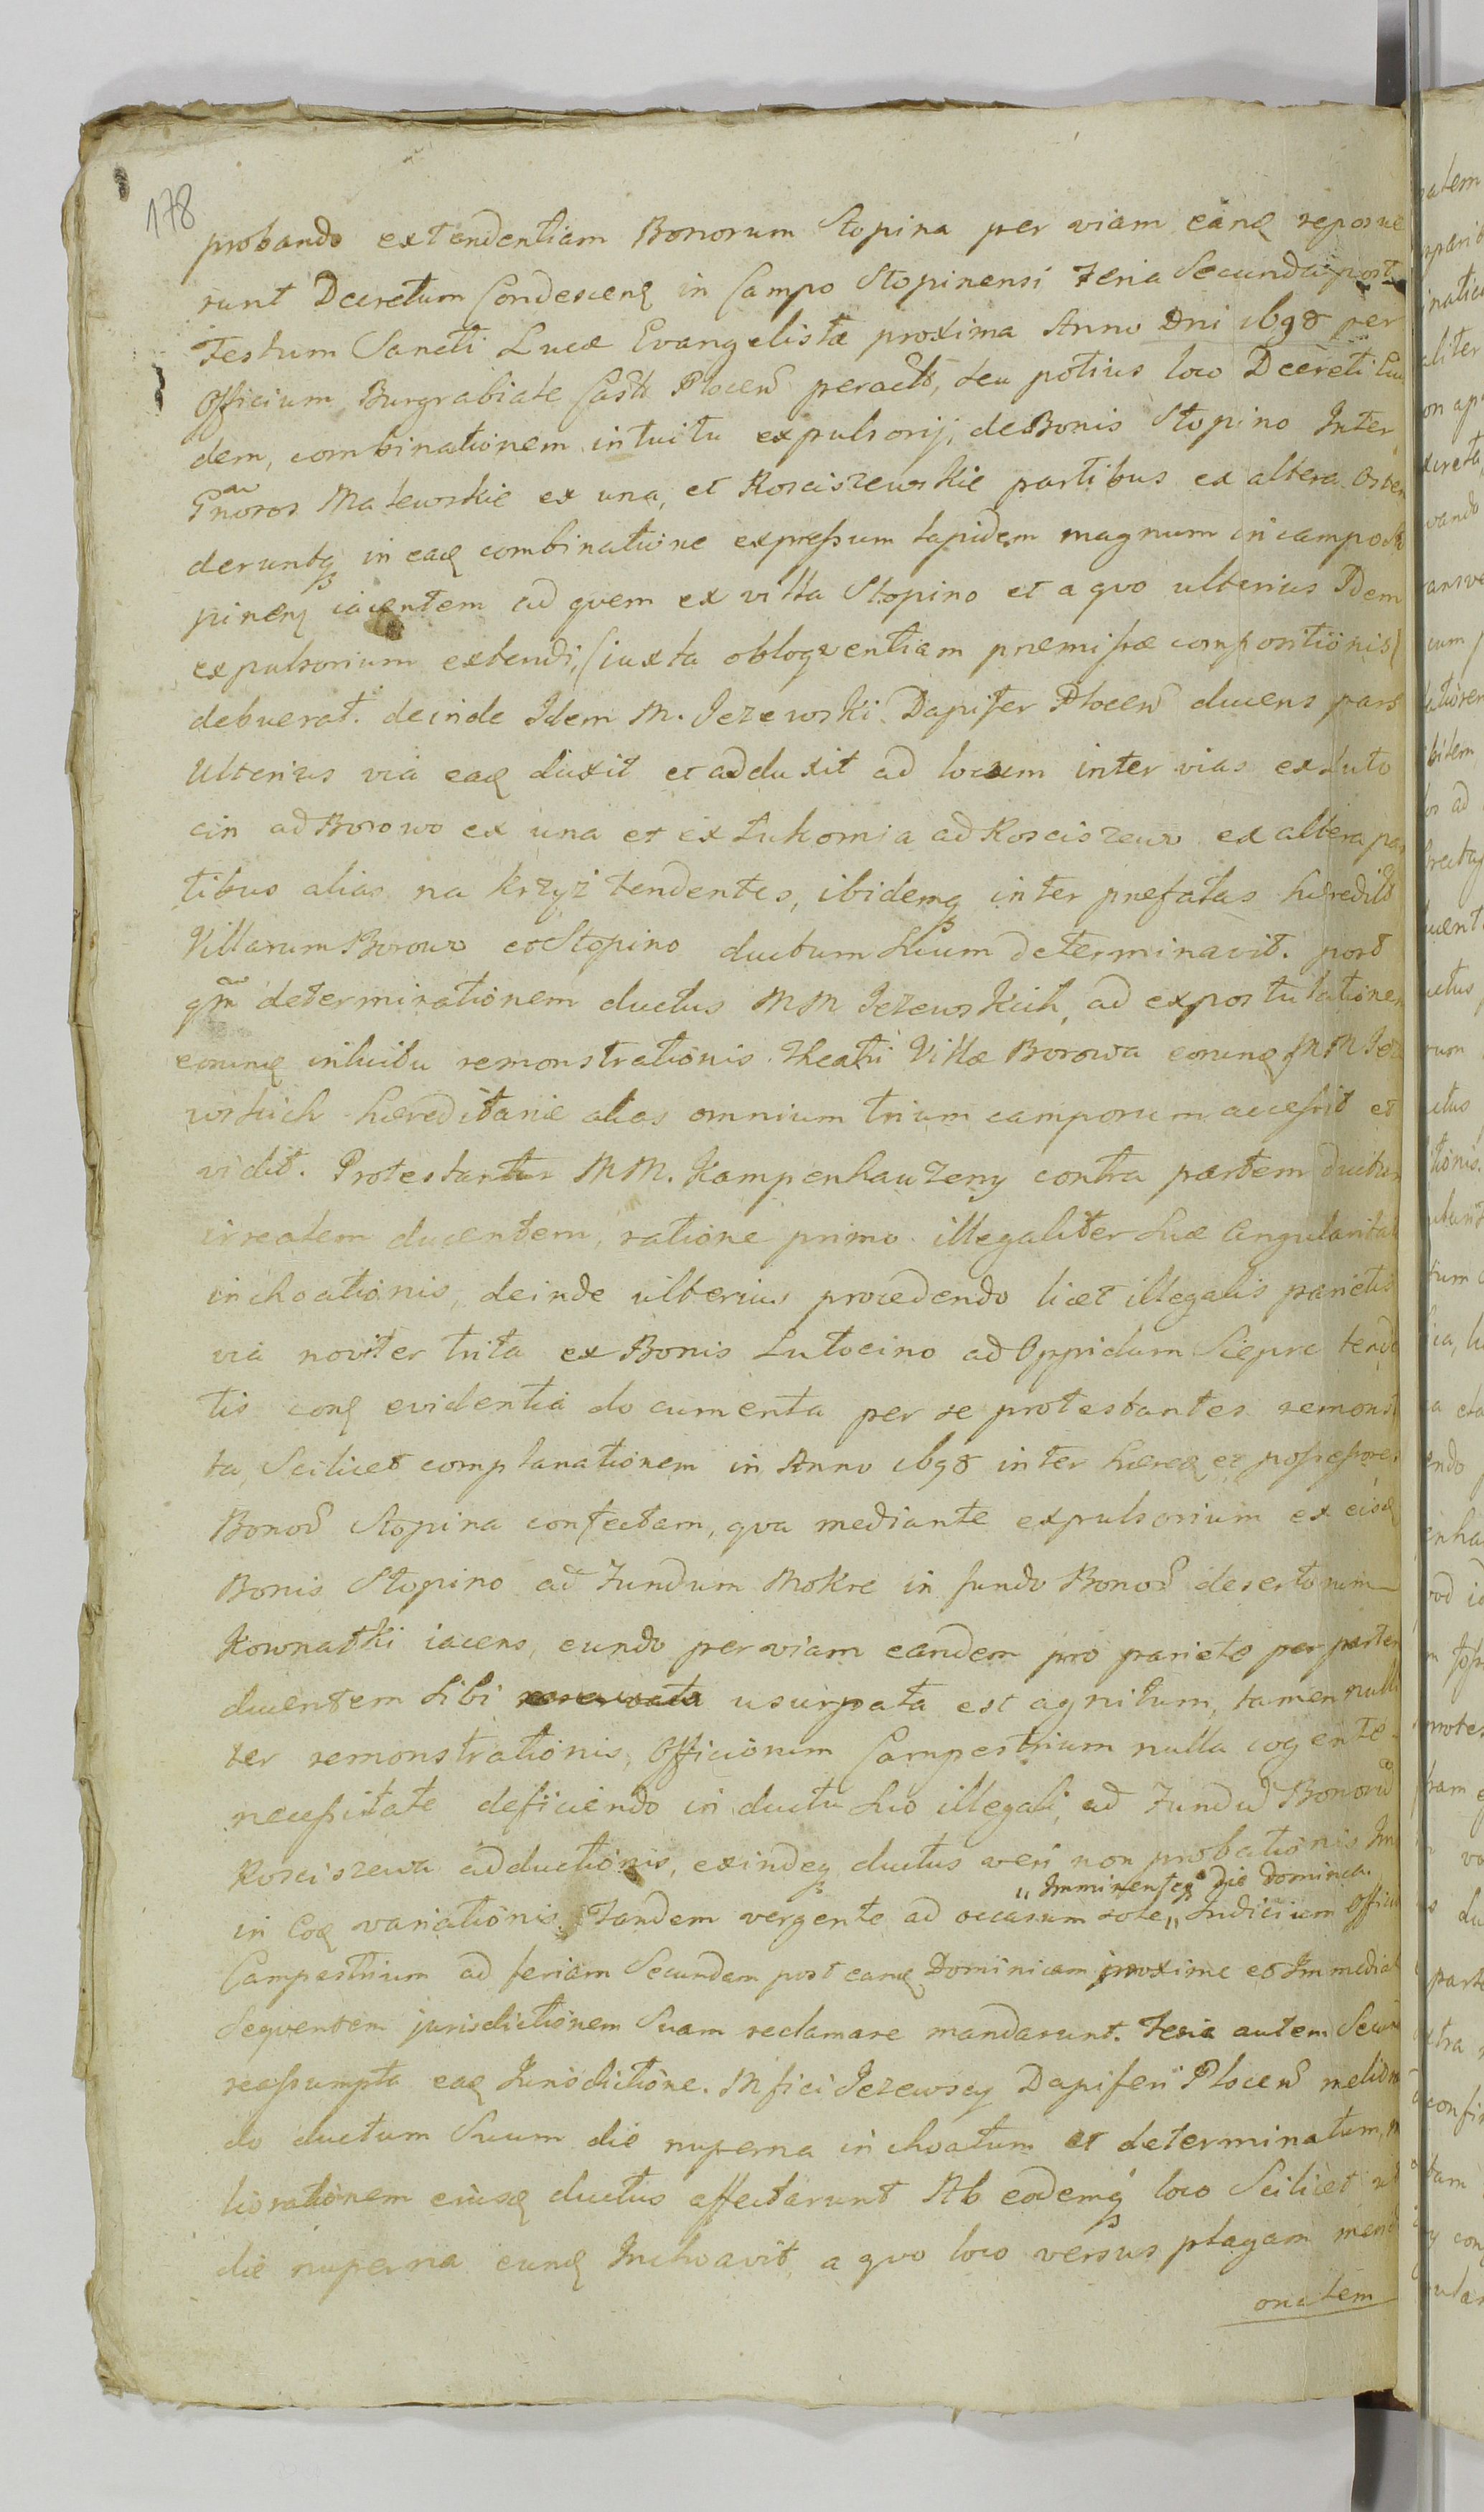 178
probando extendentiam Bonorum Stopina per viam eanq reposue
runt Decretum Condescenq in Campo Stopinensi Feria Secunda post
Festum Sancti Lucæ Evangelistæ proxima Anno Dni 1698 per
Officium Burgrabiale Castr Plocen peracto, seu potius loco Decreti
dem, combinationem intuitu expulsorij, de Bonis Stopino Inter
Gnosos Matewskie ex una, et Kosciszewskie partibus ex altera Osten
deruntq in eaq combinatione expressum lapidem magnum in campo Sto
pinenq iacentem ad quem ex villa Stopino et a quo ulterius Idem
expulsorium extendi, (iuxta obloqventiam premissæ compositionis)
debuerat. deinde Idem M. Jezewski Dapifer Plocen ducens pars
Ulterius via eaq duxit et adduxit ad locum inter vias ex Luto
cin ad Borowo ex una et ex Lukomia ad Kosciszewo ex altera par
tibus alias na krzyż tendentes, ibidemq inter prefatas hæredit
Villarum Borowo et Stopino ductum Suum determinavit. post
qm determinationem ductus MM Jezewskich, ad expostulationem
eorunq intuitu remonstrationis Theatri Villæ Borowa eorunq MM Jeze
wskich hæreditariæ alias omnium trium camporum accessit et
vidit. Protestantur MM. Kampenhauzeny contra partem ductum
irrealem ducentem, ratione primo illegaliter suæ Angularitat
inchoationis, deinde ulterius procedendo licet illegalis parietis
via noviter trita ex Bonis Lutocino ad Oppidum Sieprc tenden
tis conq evidentia documenta per se protestantes remonst
ta, Scilicet complanationem in Anno 1698 inter hæreq et possessores
Bonor Stopina confectam, qva mediante expulsorium ex eisq
Bonis Stopino ad Fundum Mokre in fundo Bonor desertorum
Kownatki iacens, eundo per viam eandem pro pariete per partem
ducentem sibi usurpata est agnitum, tamen nulli
ter remonstrationis, Officiorum Campestrium nulla cogente
necessitate deficiendo in ductu suo illegali, ad Fundu Bonoru
Kosciszewa adductionis, exindeq ductus veri non probationis Imo
in Eoq variationis. Tandem vergente ad occasum sole „ Judicium Offici
„ Imminenteq die Dominica.
Campestrium ad feriam Secundam post eanq Dominicam proxime et Immediate
Seqventem jurisdictionem Suam reclamare mandarunt. Feria autem Secun
reassumpta eaq Jurisdictione. Mfici Jezewscy Dapiferi Plocen
do ductum Suum die nuperna inchoatum et determinatum,
liorationem eiusq ductus affectarunt Ab eodemq loco Scilicet
die nuperna eunq Inchoavit, a qvo loco versus plagam meridi
onalem